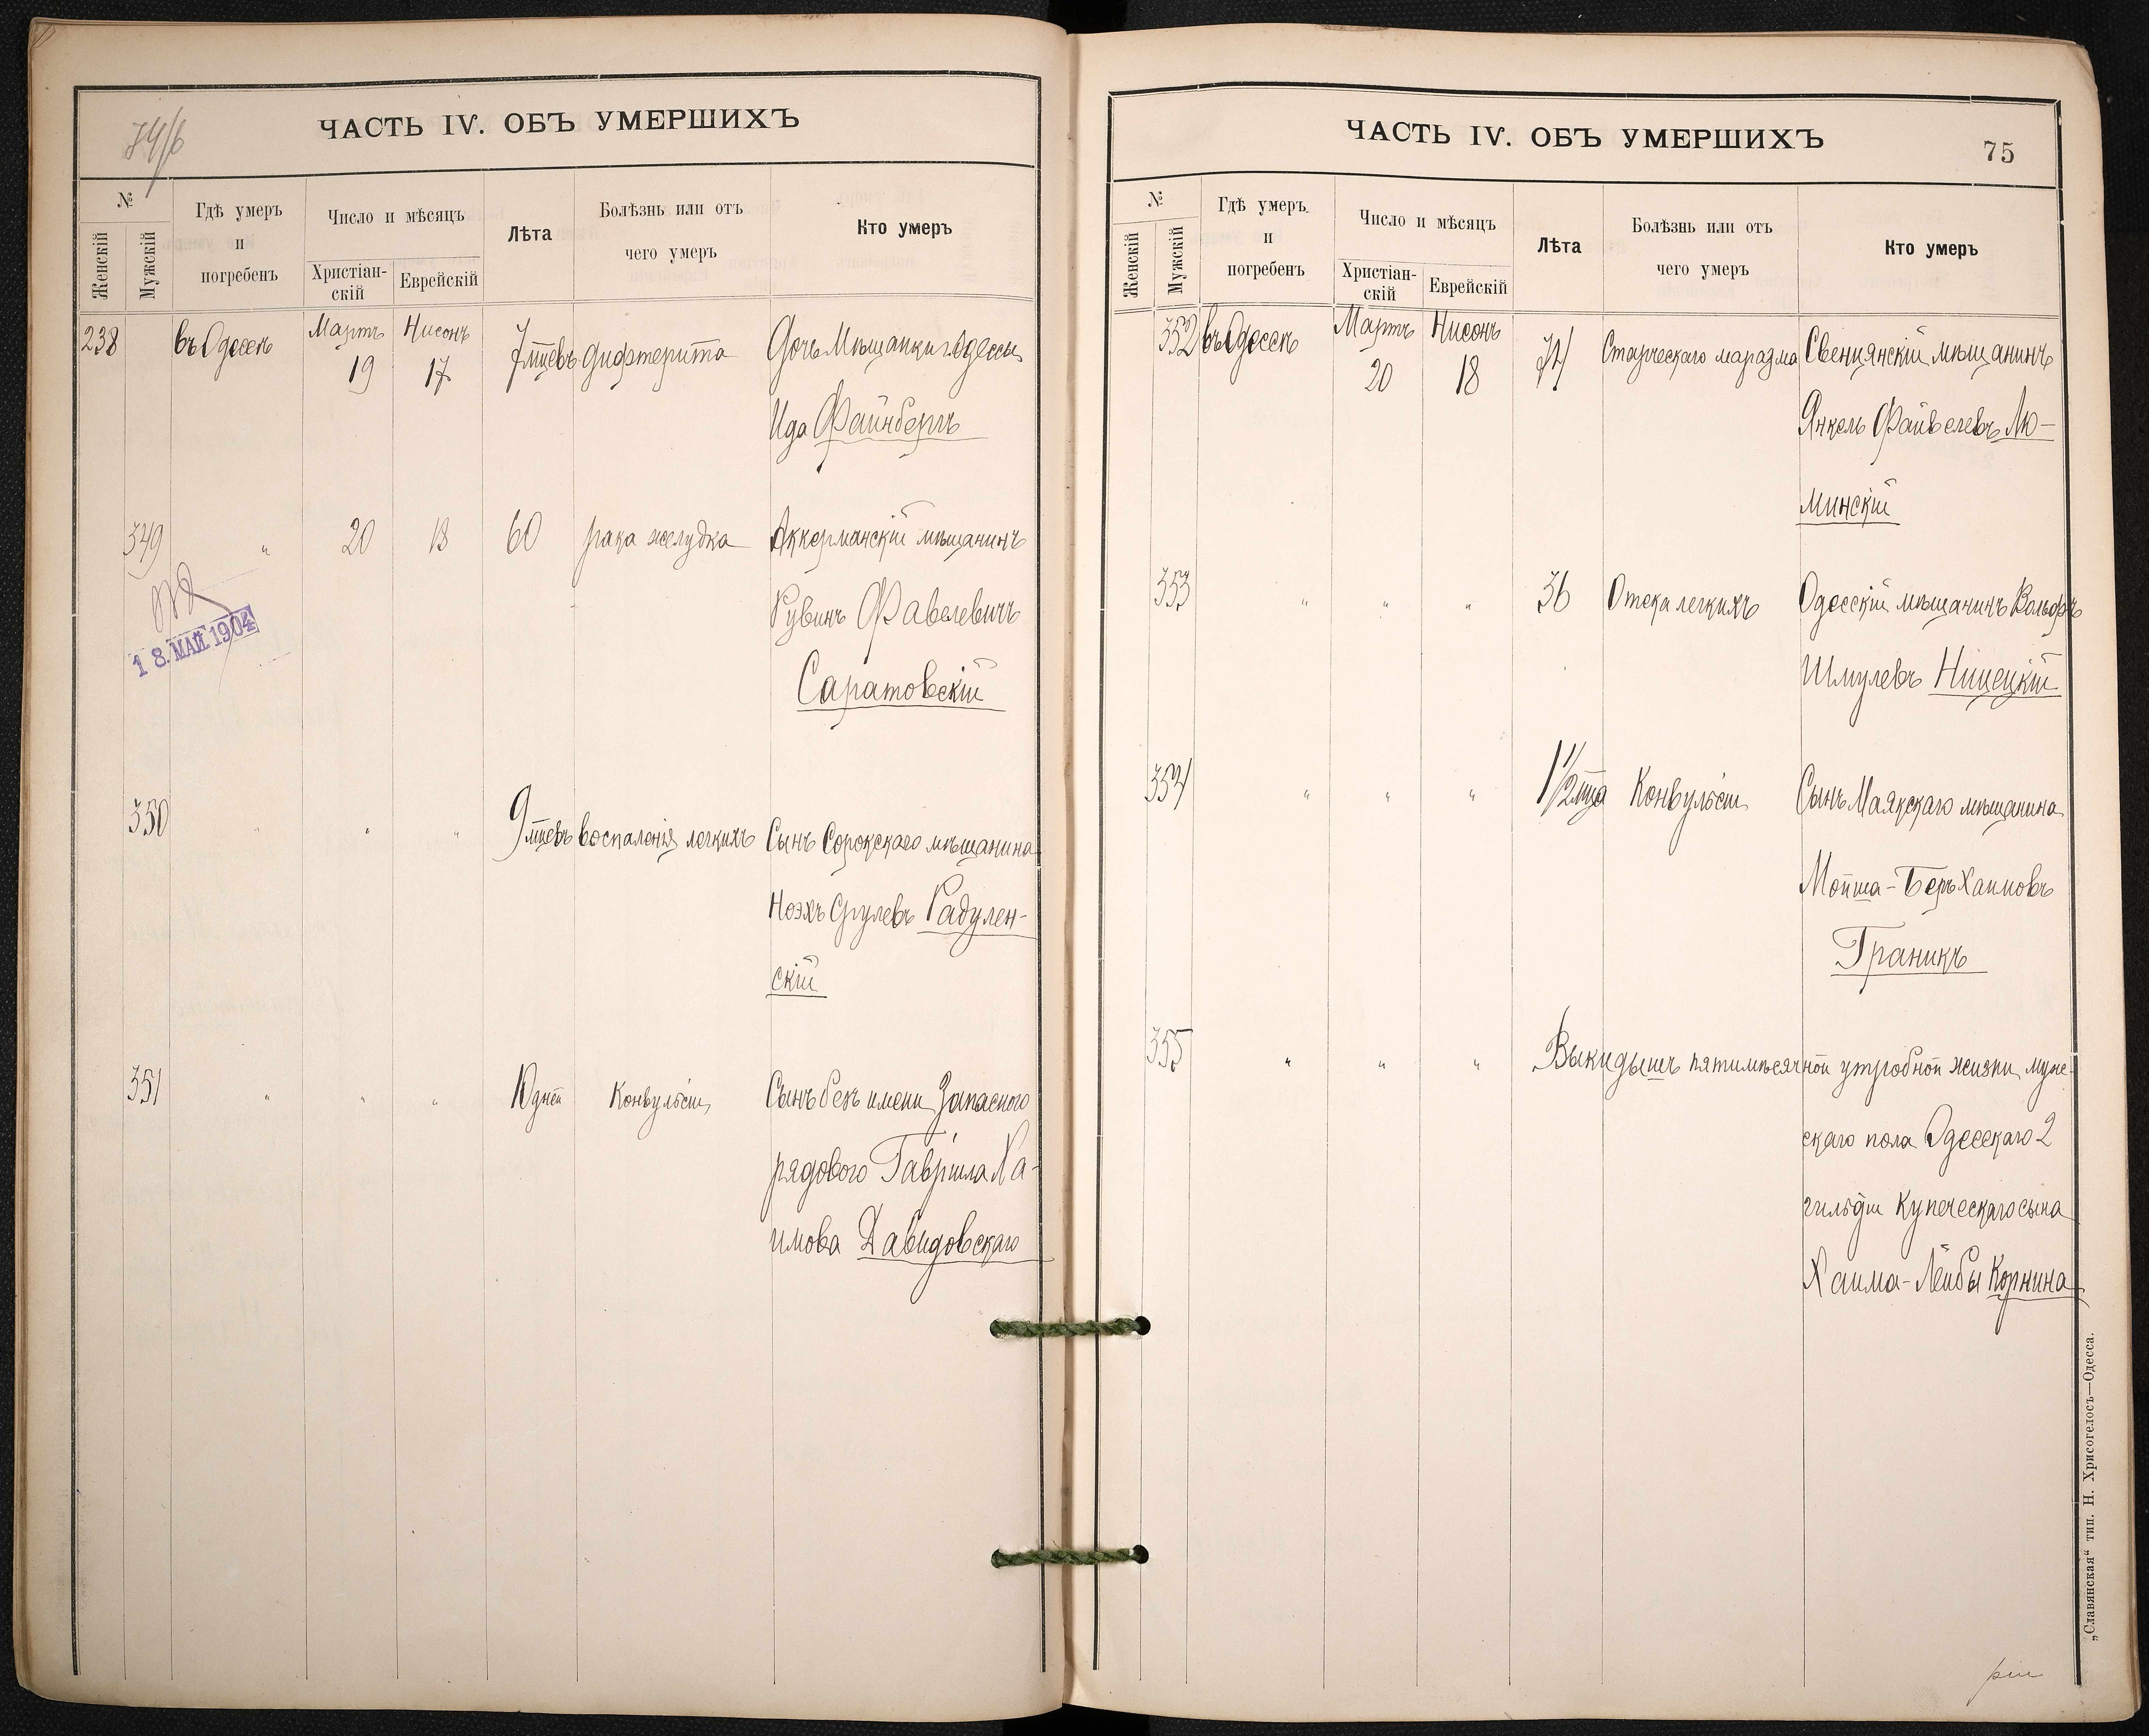 74/б
ЧАСТЬ IV. ОБЪ УМЕРШИХЪ
№
Женскій
Мужскій
Гдѣ умеръ
и
погребенъ
Число и мѣсяцъ
Христіан-
скій
Еврейскій
Лѣта
Болѣзнь или отъ
чего умеръ
Кто умеръ
238 въ Одессѣ Мартъ 19 Нисонъ 17 7 м̃цевъ Дифтерита Дочь Мѣщанки г. Одессы
Ида Файнбергъ
349 " 20 18 60 рака желудка Аккерманскій мѣщанинъ
Рувинъ Фавелевичъ
Саратовскій
18. МАЙ 1904
350 " " " 9 м̃цевъ воспаленія легкихъ Сынъ Сорокскаго мѣщанина
Ноэхъ Срулевъ Радулен-
скій
351 " " " 10 дней Конвульсіи Сынъ безъ имени Запаснаго
рядового Гавріила Ха-
имова Давидовскаго
ЧАСТЬ IV. ОБЪ УМЕРШИХЪ
75
№
Женскій
Мужскій
Гдѣ умеръ
и
погребенъ
Число и мѣсяцъ
Христіан-
скій
Еврейскій
Лѣта
Болѣзнь или отъ
чего умеръ
Кто умеръ
352 въ Одессѣ Мартъ 20 Нисонъ 18 74 Старческаго маразма Свенцянскій мѣщанинъ
Янкель Файвелевъ Лю-
минскій
353 " " " 36 Отека легкихъ Одесскій мѣщанинъ Вольфъ
Шмулевъ Ніщецкій
354 " " " 1 1/2 м̃ца Конвульсіи Сынъ Маякскаго мѣщанина
Мойша-Беръ Хаимовъ
Граникъ
355 " " " Выкидышъ пятимѣсячной утробной жизни муже-
скаго пола Одесскаго 2
гильдіи Купеческаго сына
Хаима-Лейбы Корнина
„Славянская“ тип. Н. Хрисогелосъ—Одесса.